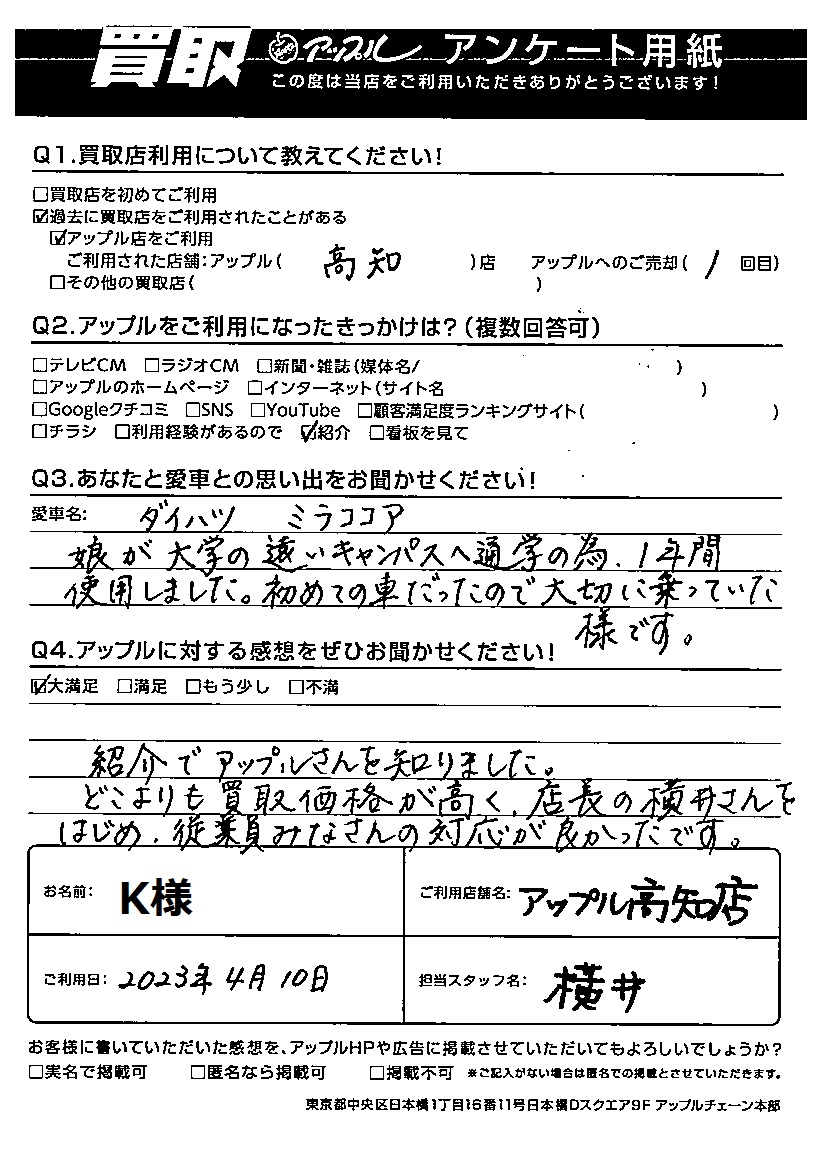 買取 アップル アンケート用紙
この度は当店をご利用いただきありがとうございます!
Q1.買取店利用について教えてください!
□買取店を初めてご利用
☑過去に買取店をご利用されたことがある
☑アップル店をご利用
ご利用された店舗:アップル( 高知 )店 アップルへのご売却( 1 回目)
□その他の買取店( )
Q2.アップルをご利用になったきっかけは?(複数回答可)
□テレビCM □ラジオCM □新聞・雑誌(媒体名/ )
□アップルのホームページ □インターネット(サイト名 )
□Googleクチコミ □SNS □YouTube □顧客満足度ランキングサイト( )
□チラシ □利用経験があるので ☑紹介 □看板を見て
Q3.あなたと愛車との思い出をお聞かせください!
愛車名: ダイハツ ミラココア
娘が大学の遠いキャンパスへ通学の為、1年間
使用しました。初めての車だったので大切に乗っていた
様です。
Q4.アップルに対する感想をぜひお聞かせください!
☑大満足 □満足 □もう少し □不満
紹介でアップルさんを知りました。
どこよりも買取価格が高く、店長の横井さんを
はじめ、従業員みなさんの対応が良かったです。
お名前: K様 ご利用店舗名: アップル高知店
ご利用日: 2023年4月10日 担当スタッフ名: 横井
お客様に書いていただいた感想を、アップルHPや広告に掲載させていただいてもよろしいでしょうか?
□実名で掲載可 □匿名なら掲載可 □掲載不可 ※ご記入がない場合は匿名での掲載とさせていただきます。
東京都中央区日本橋1丁目16番11号日本橋Dスクエア9F アップルチェーン本部